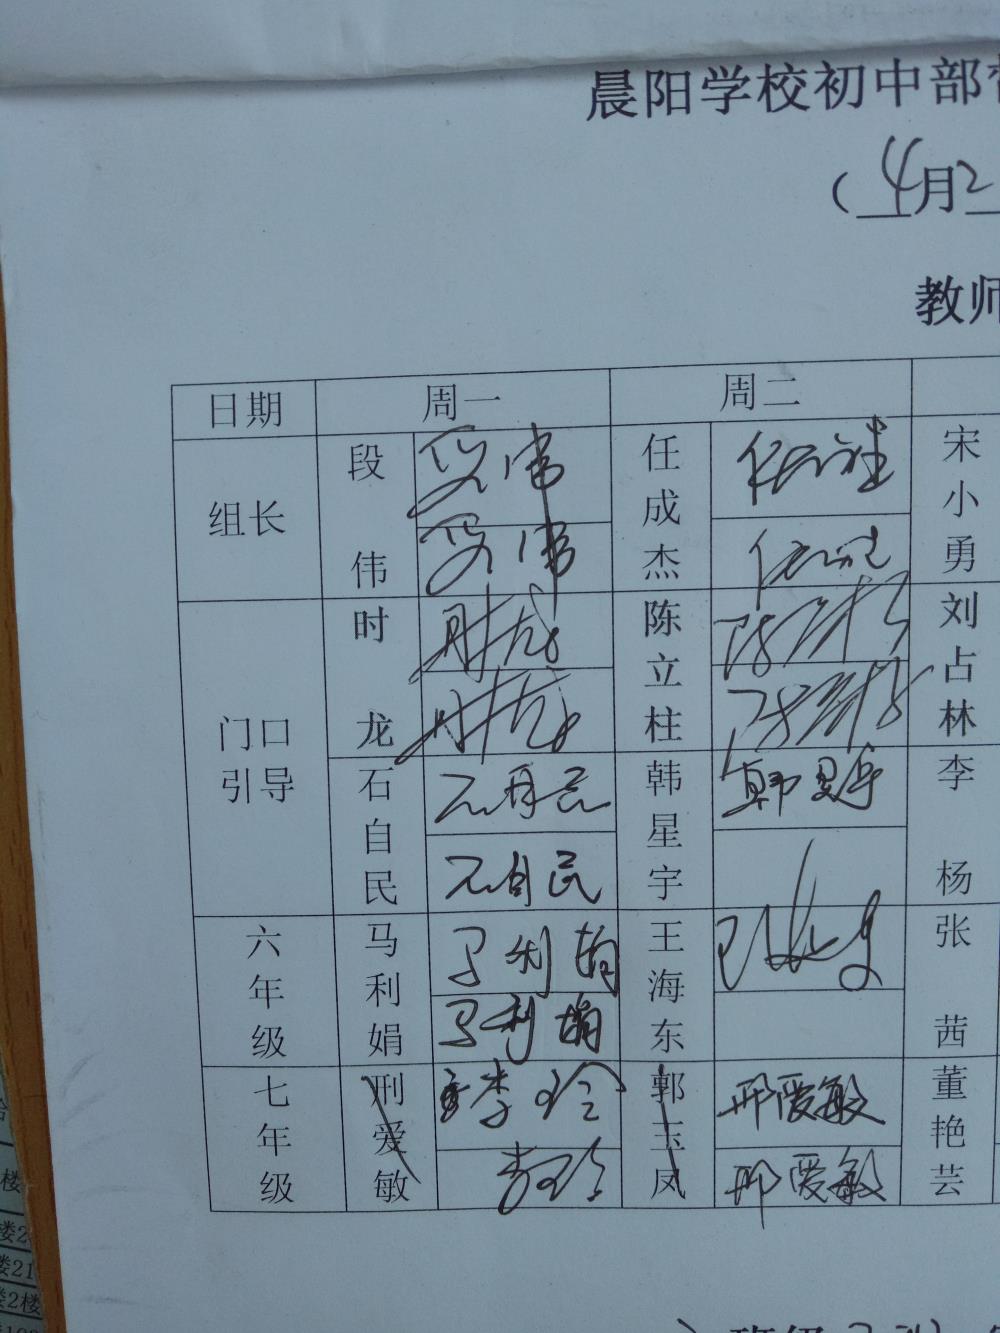 晨阳学校初中部
(4月2
教师
日期 周一 周二
组长 段伟 段伟 任成杰 宋小勇
段伟
门口引导 时龙 时龙 陈立柱 陈立柱 刘占林
时龙 陈立柱
石自民 石自民 韩星宇 韩星宇 李杨
石自民
六年级 马利娟 马利娟 王海东 张茜
马利娟
七年级 刑爱敏 李玲 郭玉凤 邢爱敏 董艳芸
李玲 邢爱敏